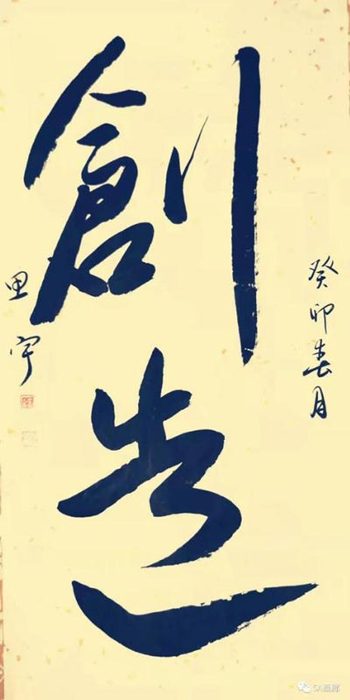 創造
癸卯春月
田宇